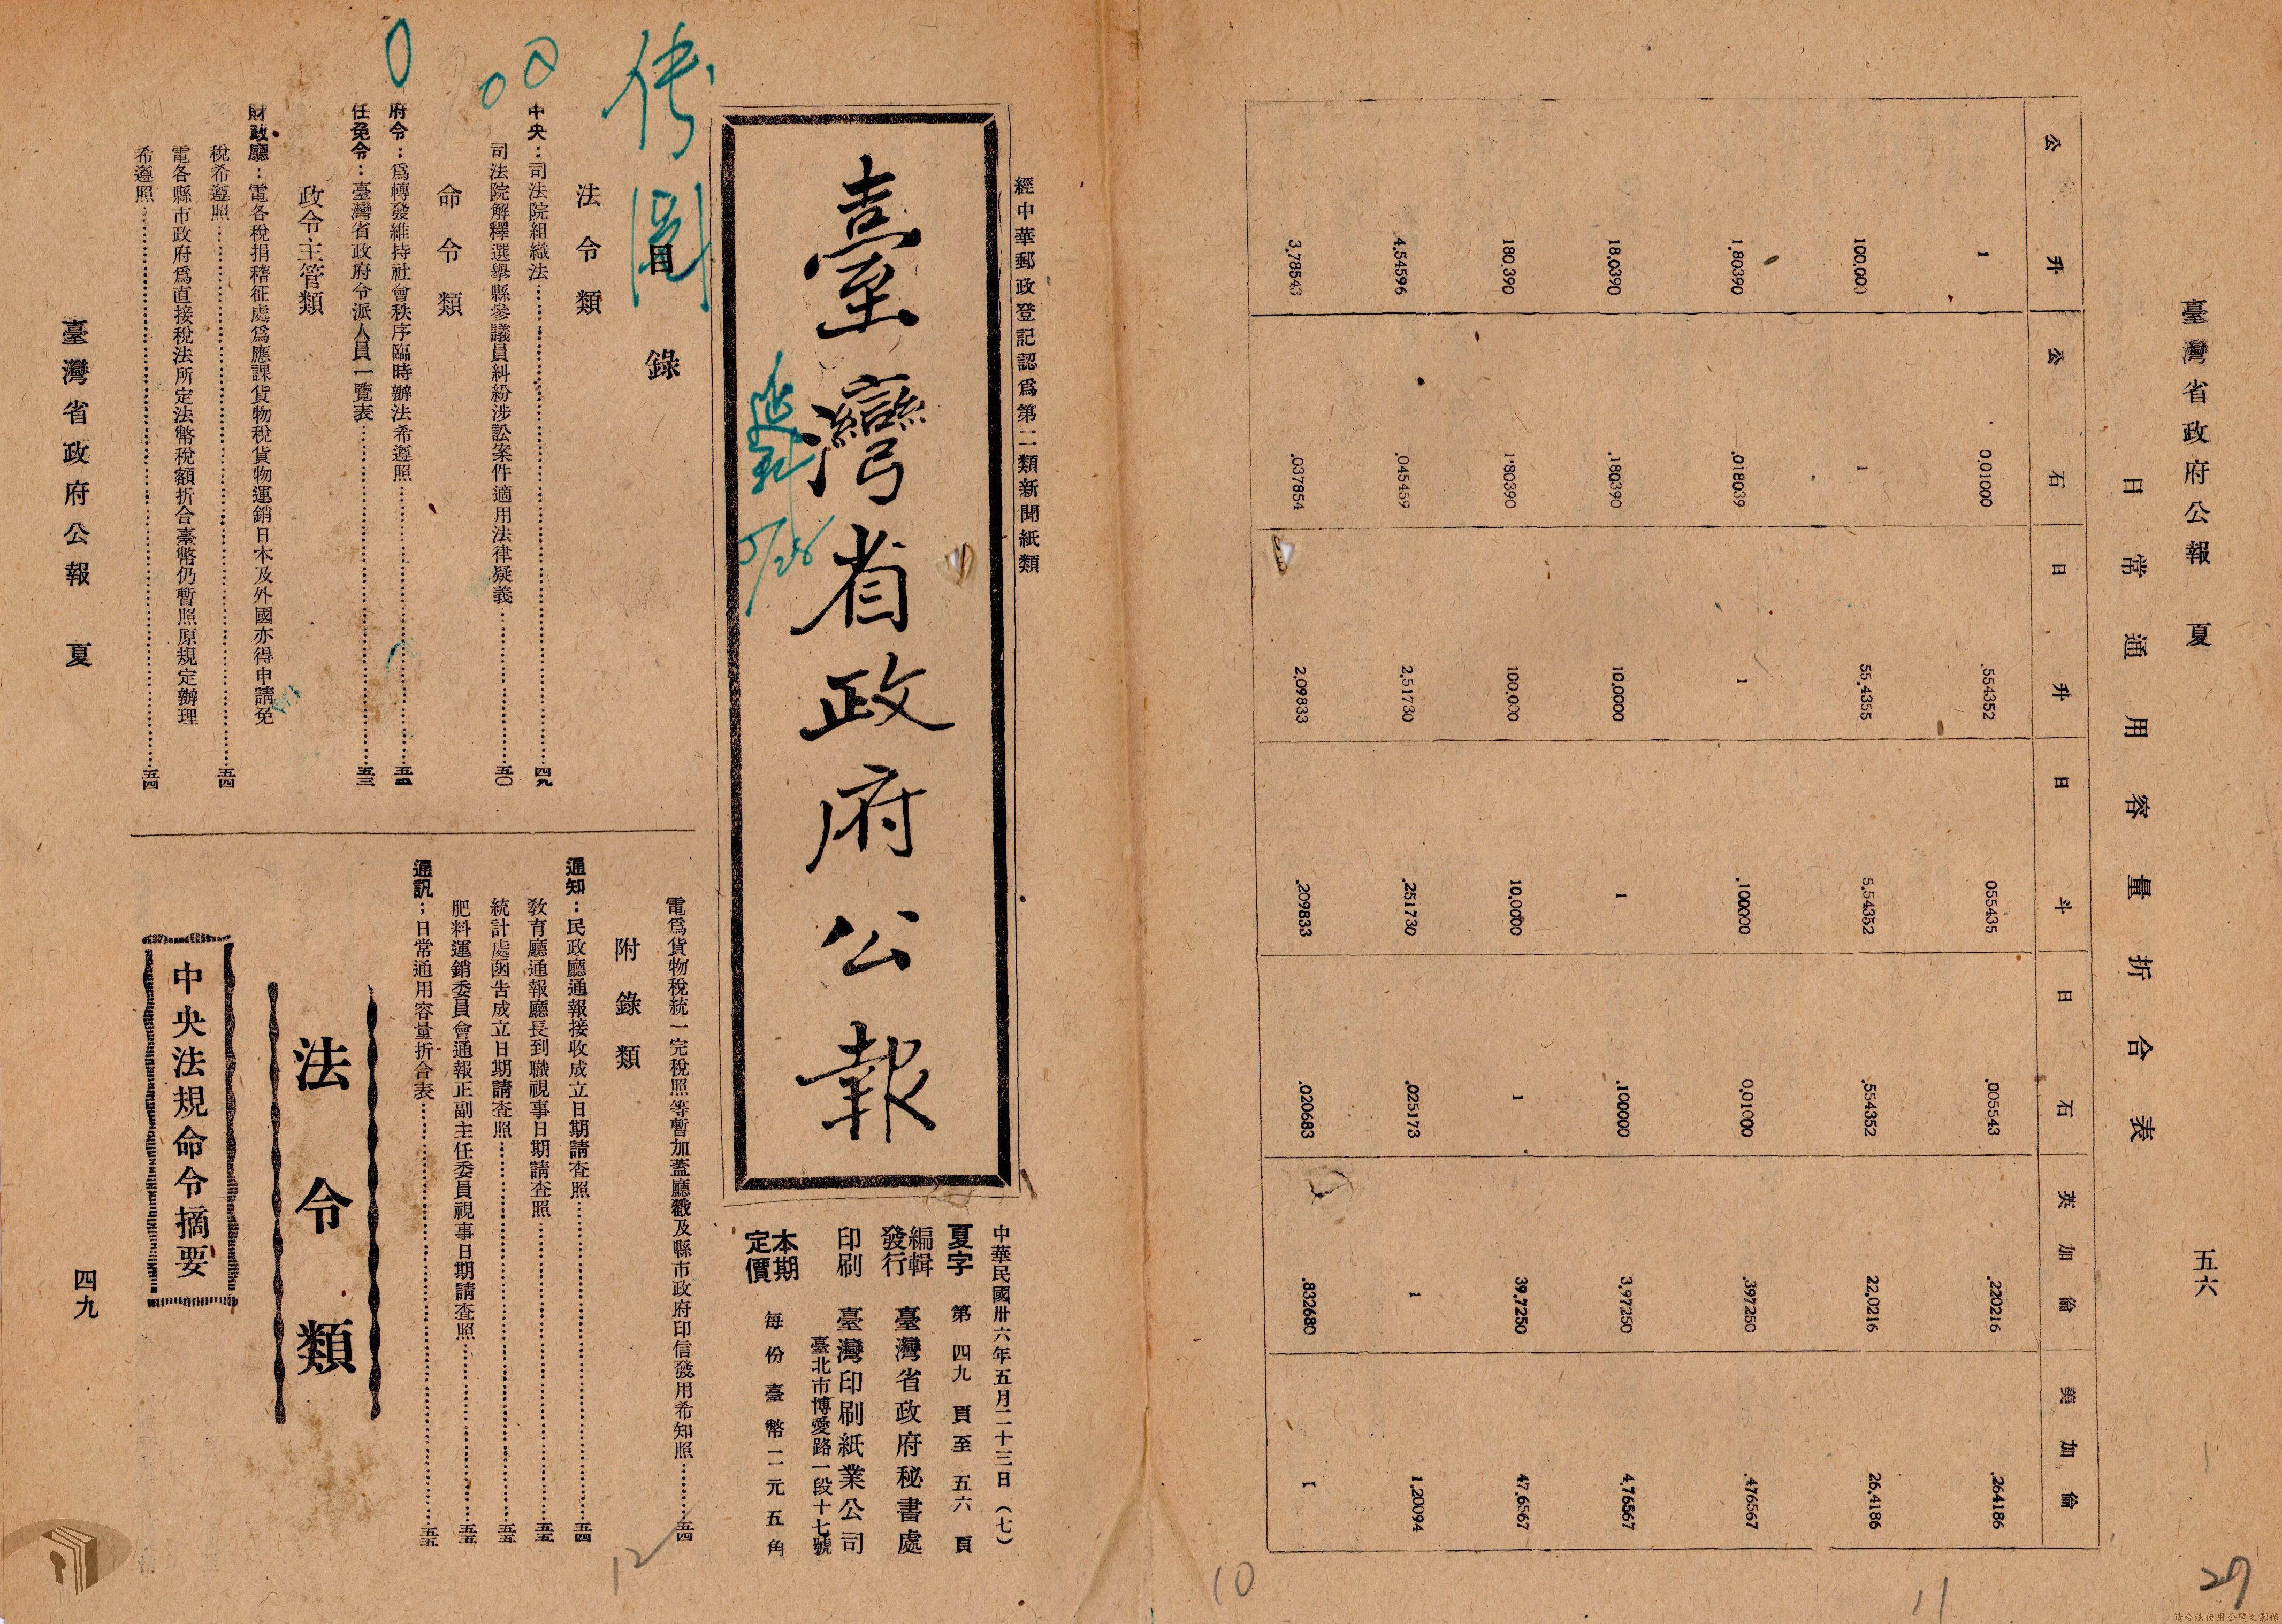 臺灣省政府公報　夏
五六
日常通用容量折合表
公升　公石　日升　日斗　日石　英加倫　美加倫
1　0.01000　.554352　055435　.005543　.220216　.264186
100.000　1　55.4355　5.54352　.554352　22.0216　26.4186
1.80390　.018039　1　.100000　0.01000　.397250　.476567
18.0390　.180390　10.0000　1　.100000　3.97250　4.76567
180.390　1.80390　100.000　10.0000　1　39.7250　47.6567
4.54596　.045459　2.51730　.251730　.025173　1　1.20094
3.78543　.037854　2.09833　.209833　.020683　.832680　1
經中華郵政登記認爲第二類新聞紙類
臺灣省政府公報
中華民國卅六年五月二十三日（七）
夏字　第四九頁至五六頁
編輯發行　臺灣省政府秘書處
印刷　臺灣印刷紙業公司
臺北市博愛路一段十七號
本期定價　每份臺幣二元五角
目錄
法令類
中央：司法院組織法……四九
司法院解釋選舉縣參議員糾紛涉訟案件適用法律疑義……五〇
命令類
府令：爲轉發維持社會秩序臨時辦法希遵照……五二
任免令：臺灣省政府令派人員一覽表……五三
政令主管類
財政廳：電各稅捐稽征處爲應課貨物稅貨物運銷日本及外國亦得申請免
稅希遵照……五四
電各縣市政府爲直接稅法所定法幣稅額折合臺幣仍暫照原規定辦理
希遵照……五四
電爲貨物稅統一完稅照等暫加蓋廳戳及縣市政府印信發用希知照……五四
附錄類
通知：民政廳通報接收成立日期請查照……五四
敎育廳通報廳長到職視事日期請查照……五五
統計處函告成立日期請查照……五五
肥料運銷委員會通報正副主任委員視事日期請查照……五五
通訊；日常通用容量折合表……五五
法令類
中央法規命令摘要
臺灣省政府公報　夏
四九
12
10
11
27
請合法使用公開之影像